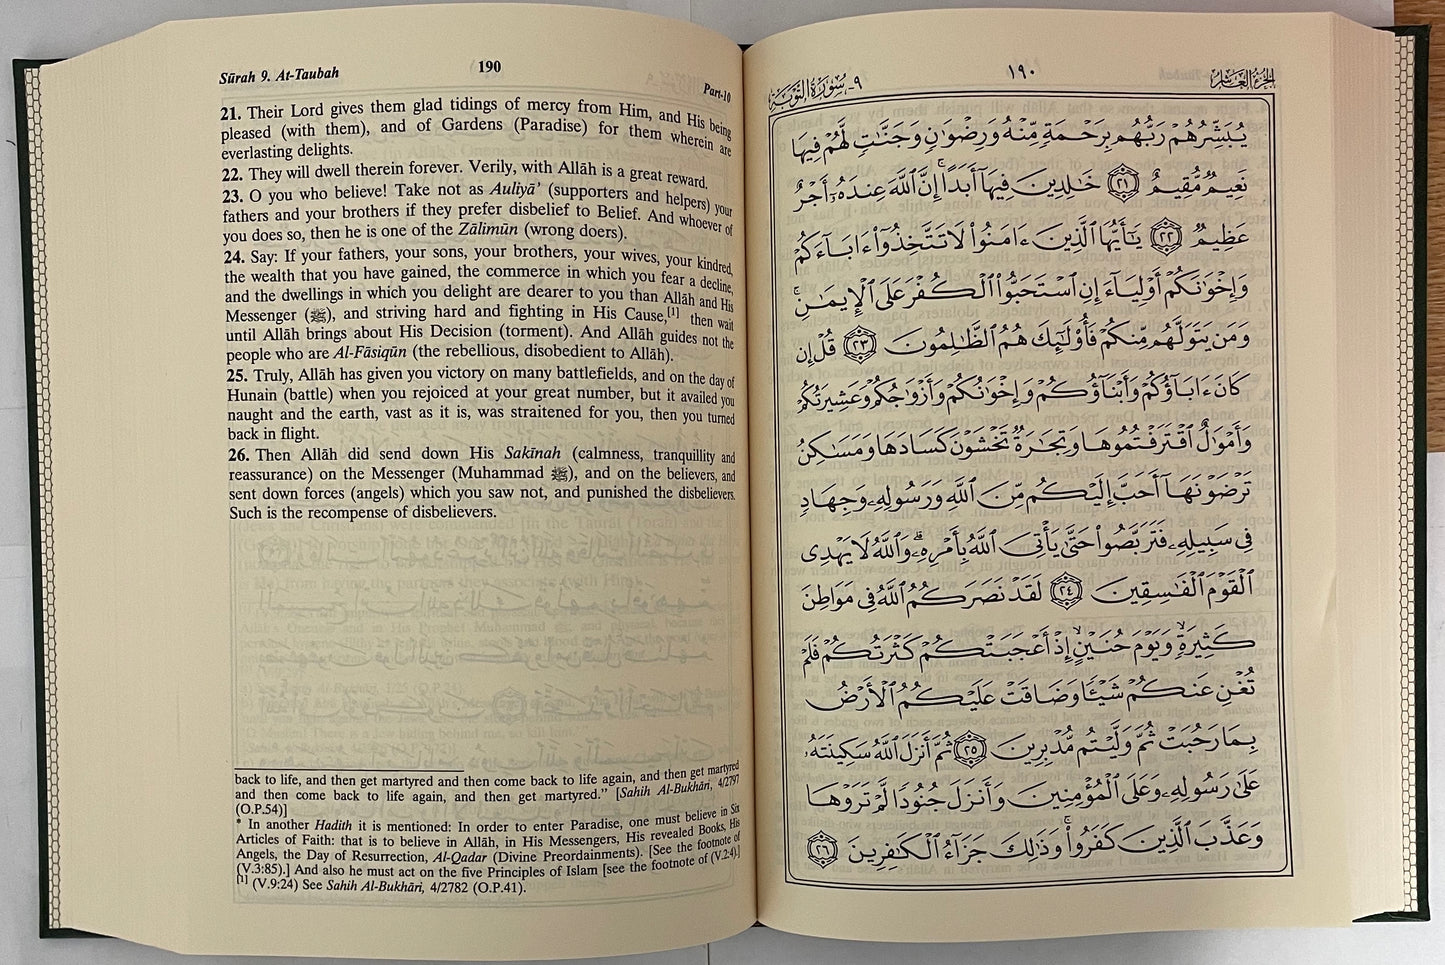 Sūrah 9. At-Taubah
190
Part-10
21. Their Lord gives them glad tidings of mercy from Him, and His being
pleased (with them), and of Gardens (Paradise) for them wherein are
everlasting delights.
22. They will dwell therein forever. Verily, with Allāh is a great reward.
23. O you who believe! Take not as Auliyā’ (supporters and helpers) your
fathers and your brothers if they prefer disbelief to Belief. And whoever of
you does so, then he is one of the Zālimūn (wrong doers).
24. Say: If your fathers, your sons, your brothers, your wives, your kindred,
the wealth that you have gained, the commerce in which you fear a decline,
and the dwellings in which you delight are dearer to you than Allāh and His
Messenger (ﷺ), and striving hard and fighting in His Cause,[1] then wait
until Allāh brings about His Decision (torment). And Allāh guides not the
people who are Al-Fāsiqūn (the rebellious, disobedient to Allāh).
25. Truly, Allāh has given you victory on many battlefields, and on the day of
Hunain (battle) when you rejoiced at your great number, but it availed you
naught and the earth, vast as it is, was straitened for you, then you turned
back in flight.
26. Then Allāh did send down His Sakīnah (calmness, tranquillity and
reassurance) on the Messenger (Muhammad ﷺ), and on the believers, and
sent down forces (angels) which you saw not, and punished the disbelievers.
Such is the recompense of disbelievers.
back to life, and then get martyred and then come back to life again, and then get martyred
and then come back to life again, and then get martyred.” [Sahih Al-Bukhāri, 4/2797
(O.P.54)]
* In another Hadith it is mentioned: In order to enter Paradise, one must believe in Six
Articles of Faith: that is to believe in Allāh, in His Messengers, His revealed Books, His
Angels, the Day of Resurrection, Al-Qadar (Divine Preordainments). [See the footnote of
(V.3:85).] And also he must act on the five Principles of Islam [see the footnote of (V.2:4).]
[1] (V.9:24) See Sahih Al-Bukhāri, 4/2782 (O.P.41).
الجزء العاشر
١٩٠
٩- سورة التوبة
يُبَشِّرُهُمْ رَبُّهُم بِرَحْمَةٍ مِّنْهُ وَرِضْوَٰنٍ وَجَنَّٰتٍ لَّهُمْ فِيهَا
نَعِيمٌ مُّقِيمٌ ٢١ خَٰلِدِينَ فِيهَآ أَبَدًا ۚ إِنَّ ٱللَّهَ عِندَهُۥٓ أَجْرٌ
عَظِيمٌ ٢٢ يَٰٓأَيُّهَا ٱلَّذِينَ ءَامَنُوا۟ لَا تَتَّخِذُوٓا۟ ءَابَآءَكُمْ
وَإِخْوَٰنَكُمْ أَوْلِيَآءَ إِنِ ٱسْتَحَبُّوا۟ ٱلْكُفْرَ عَلَى ٱلْإِيمَٰنِ ۚ
وَمَن يَتَوَلَّهُم مِّنكُمْ فَأُو۟لَٰٓئِكَ هُمُ ٱلظَّٰلِمُونَ ٢٣ قُلْ إِن
كَانَ ءَابَآؤُكُمْ وَأَبْنَآؤُكُمْ وَإِخْوَٰنُكُمْ وَأَزْوَٰجُكُمْ وَعَشِيرَتُكُمْ
وَأَمْوَٰلٌ ٱقْتَرَفْتُمُوهَا وَتِجَٰرَةٌ تَخْشَوْنَ كَسَادَهَا وَمَسَٰكِنُ
تَرْضَوْنَهَآ أَحَبَّ إِلَيْكُم مِّنَ ٱللَّهِ وَرَسُولِهِۦ وَجِهَادٍ
فِى سَبِيلِهِۦ فَتَرَبَّصُوا۟ حَتَّىٰ يَأْتِىَ ٱللَّهُ بِأَمْرِهِۦ ۗ وَٱللَّهُ لَا يَهْدِى
ٱلْقَوْمَ ٱلْفَٰسِقِينَ ٢٤ لَقَدْ نَصَرَكُمُ ٱللَّهُ فِى مَوَاطِنَ
كَثِيرَةٍ ۙ وَيَوْمَ حُنَيْنٍ ۙ إِذْ أَعْجَبَتْكُمْ كَثْرَتُكُمْ فَلَمْ
تُغْنِ عَنكُمْ شَيْـًٔا وَضَاقَتْ عَلَيْكُمُ ٱلْأَرْضُ
بِمَا رَحُبَتْ ثُمَّ وَلَّيْتُم مُّدْبِرِينَ ٢٥ ثُمَّ أَنزَلَ ٱللَّهُ سَكِينَتَهُۥ
عَلَىٰ رَسُولِهِۦ وَعَلَى ٱلْمُؤْمِنِينَ وَأَنزَلَ جُنُودًا لَّمْ تَرَوْهَا
وَعَذَّبَ ٱلَّذِينَ كَفَرُوا۟ ۚ وَذَٰلِكَ جَزَآءُ ٱلْكَٰفِرِينَ ٢٦